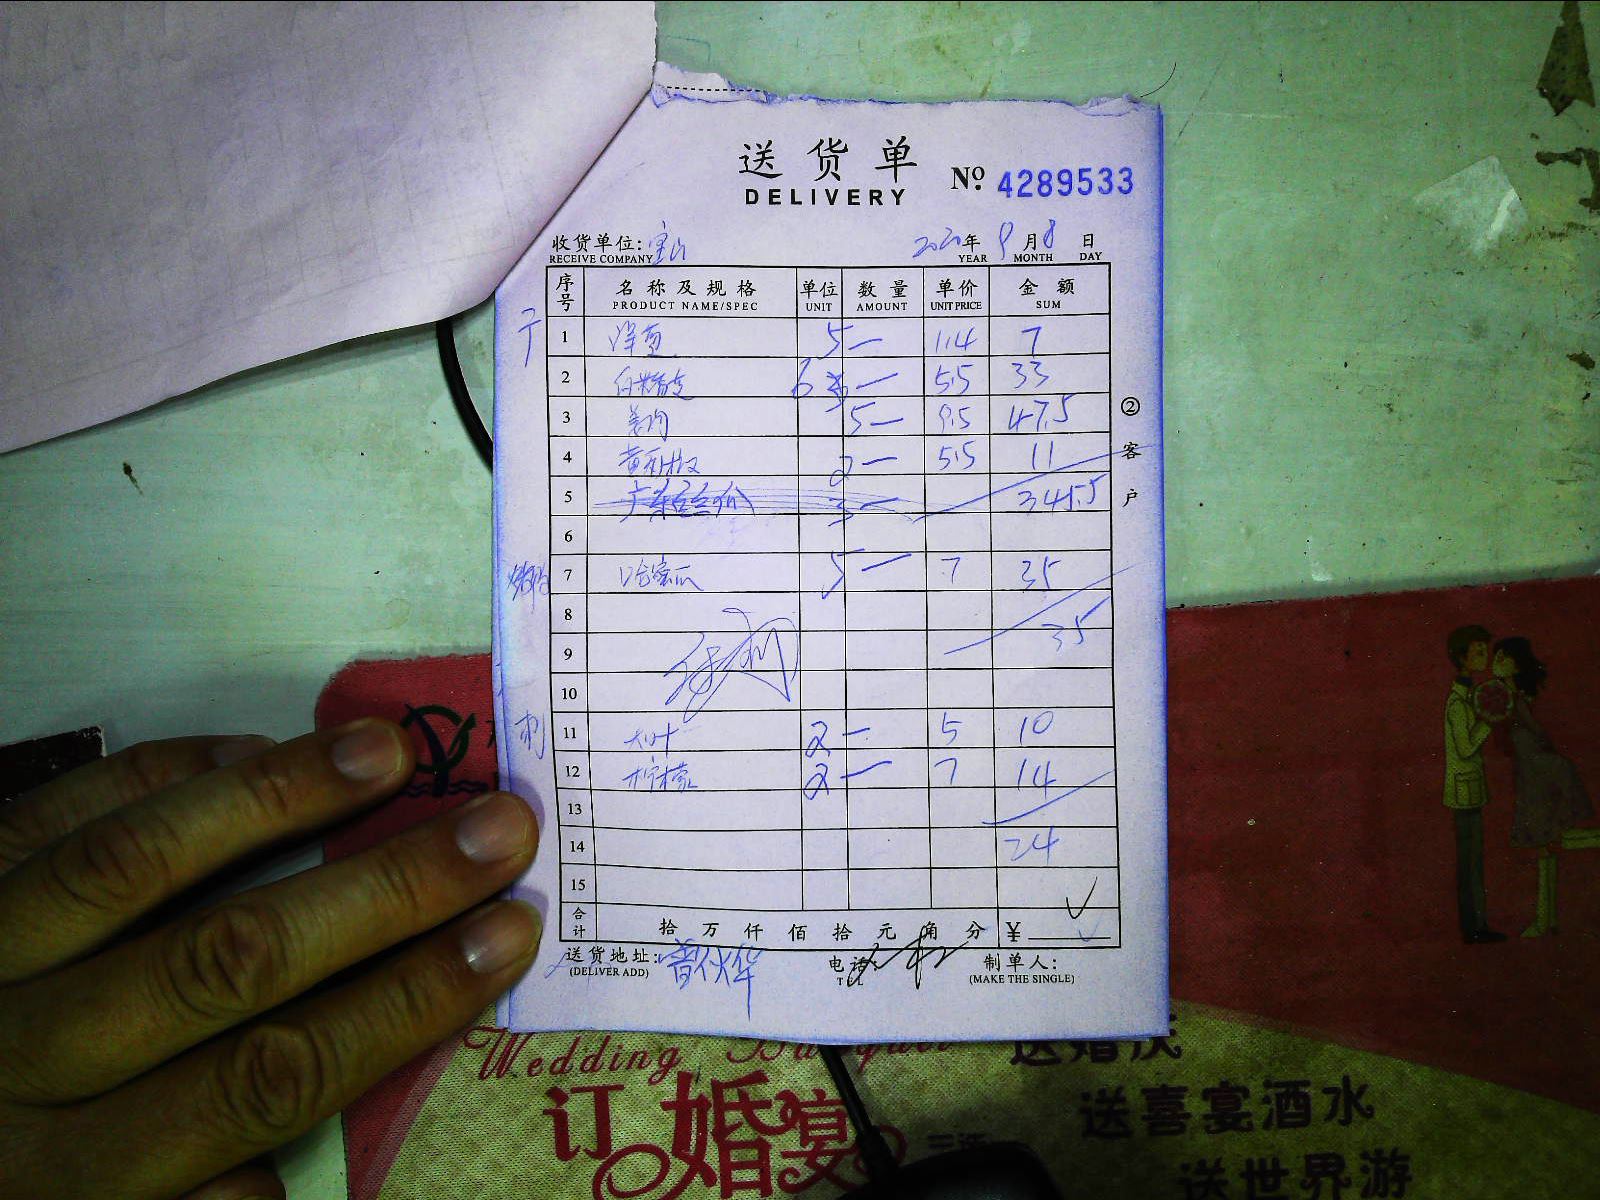 送货单
DELIVERY
No. 4289533
收货单位: 宝山
RECEIVE COMPANY
2020年 9月 8日
YEAR MONTH DAY
序号 名称及规格 单位 数量 单价 金额
PRODUCT NAME/SPEC UNIT AMOUNT UNIT PRICE SUM
1 洋葱 5一 1.4 7
2 6 一 5.5 33
3 姜肉 5一 9.5 47.5
4 2一 5.5 11
5 3一 345.5
6
7 哈密瓜 5一 7 35
8
9 35
10
刺 11 大叶 2一 5 10
12 柠檬 2一 7 14
13
14 24
15
合计 拾 万 仟 佰 拾 元 角 分 ¥
② 客户
送货地址:
(DELIVER ADD)
电话:
TEL
制单人:
(MAKE THE SINGLE)
Wedding Banquet
订婚宴
送婚庆
送喜宴酒水
送世界游